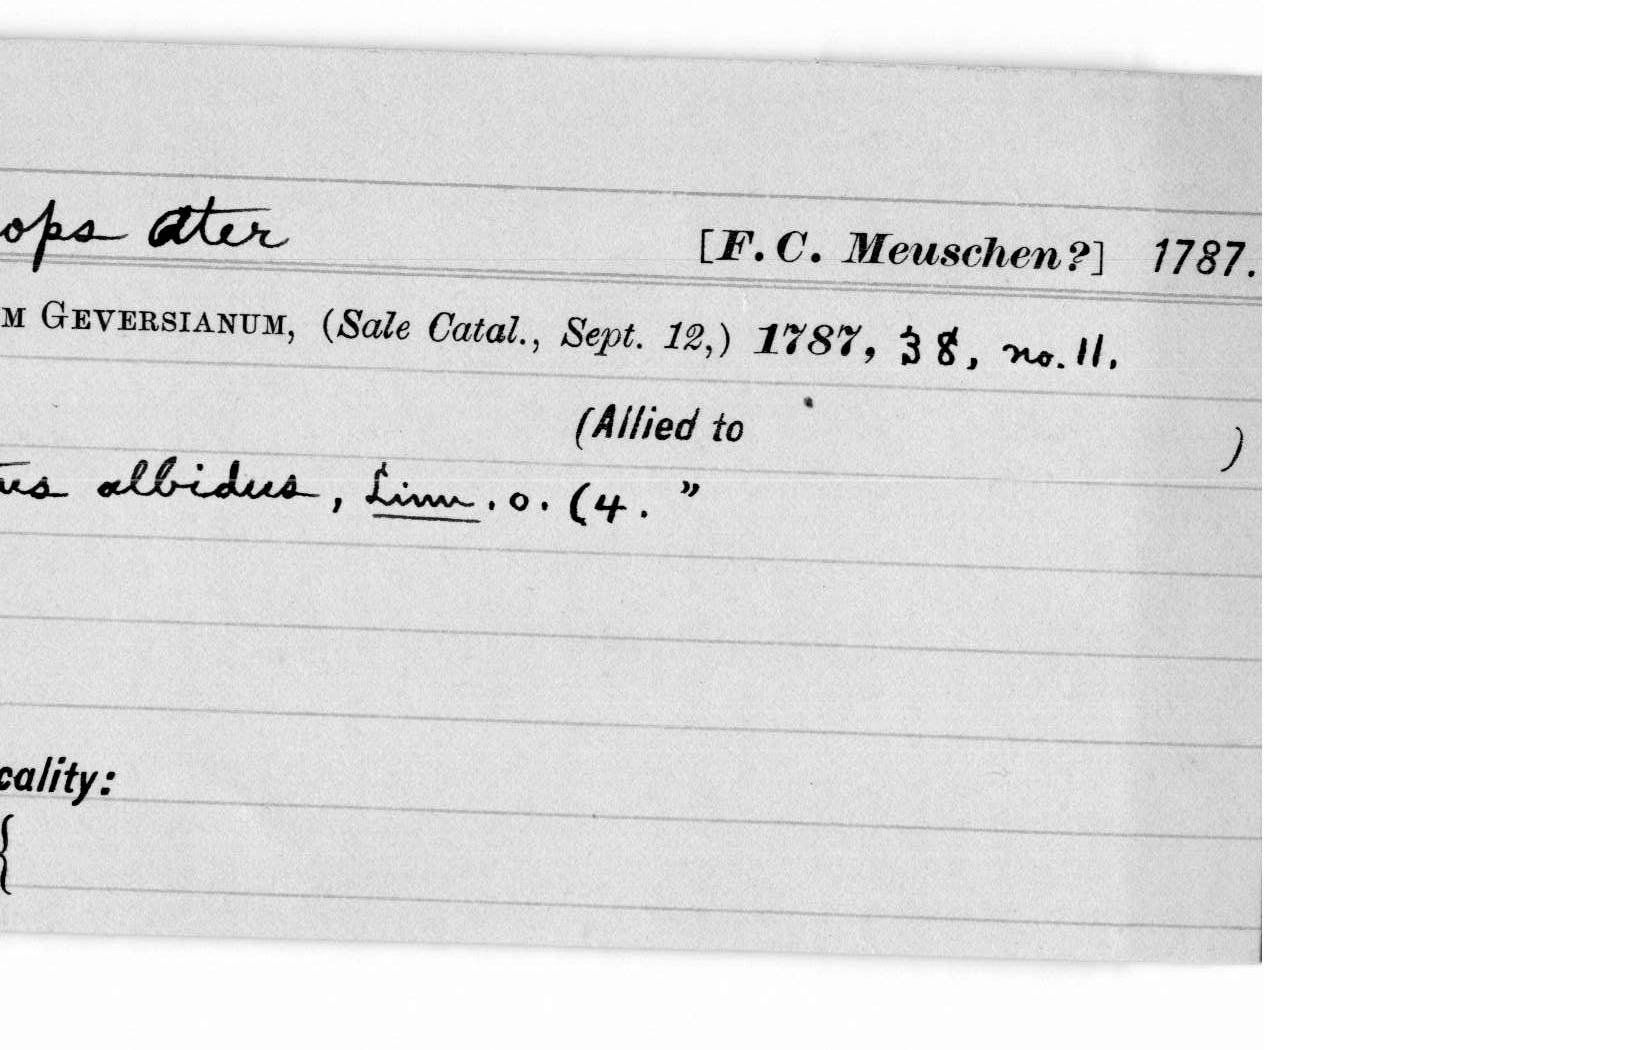 ops ater [F. C. Meuschen?] 1787.
M GEVERSIANUM, (Sale Catal., Sept. 12,) 1787, 38, no. 11.
(Allied to )
us albidus, Linn. o. (4. "
cality:
{